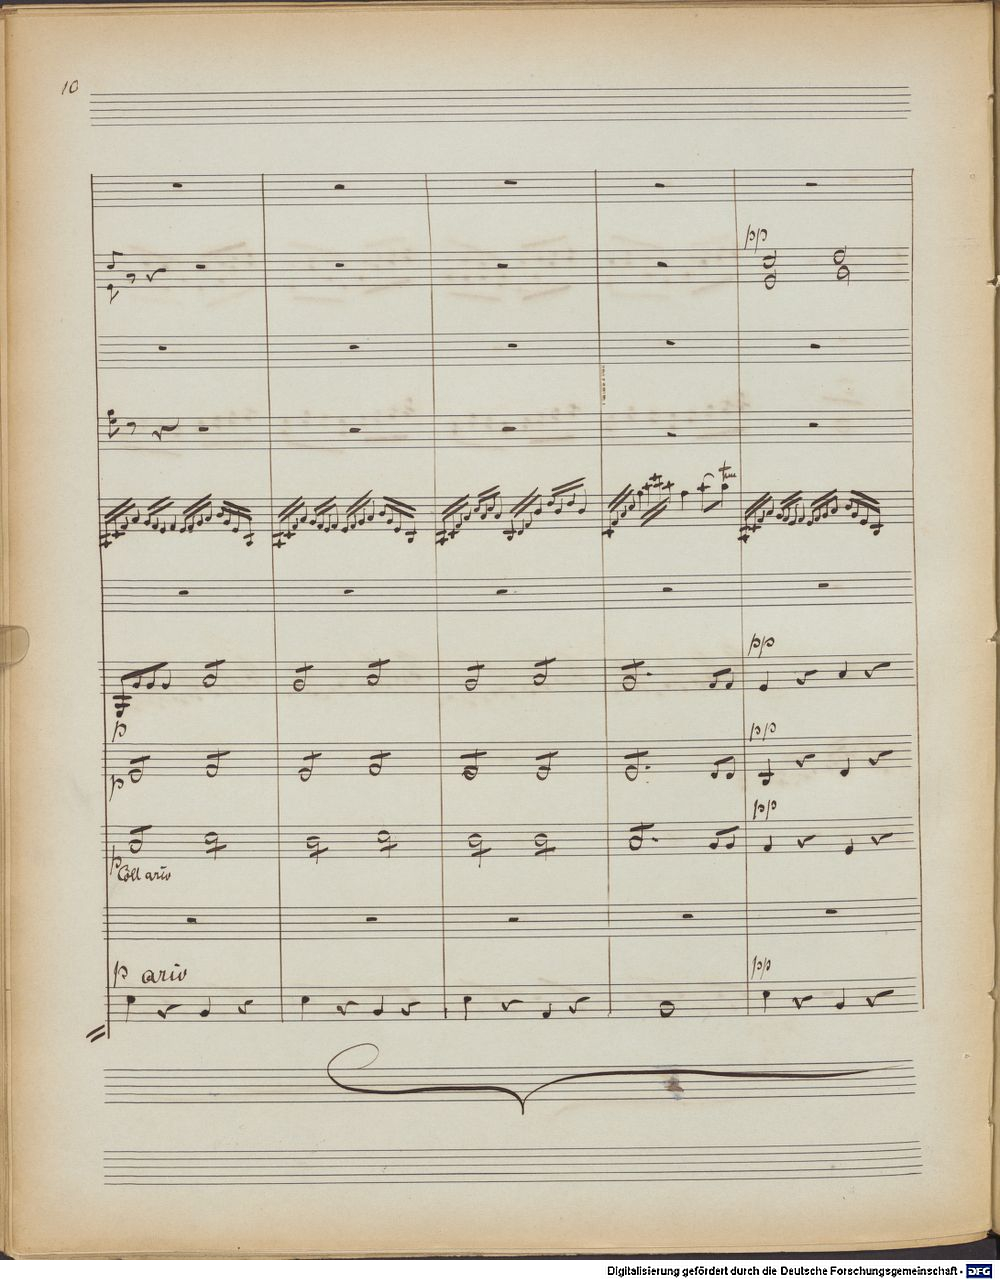 10
pp
pp
p
pp
p
pp
p
Coll arco
p arco
pp
Digitalisierung gefördert durch die Deutsche Forschungsgemeinschaft - DFG